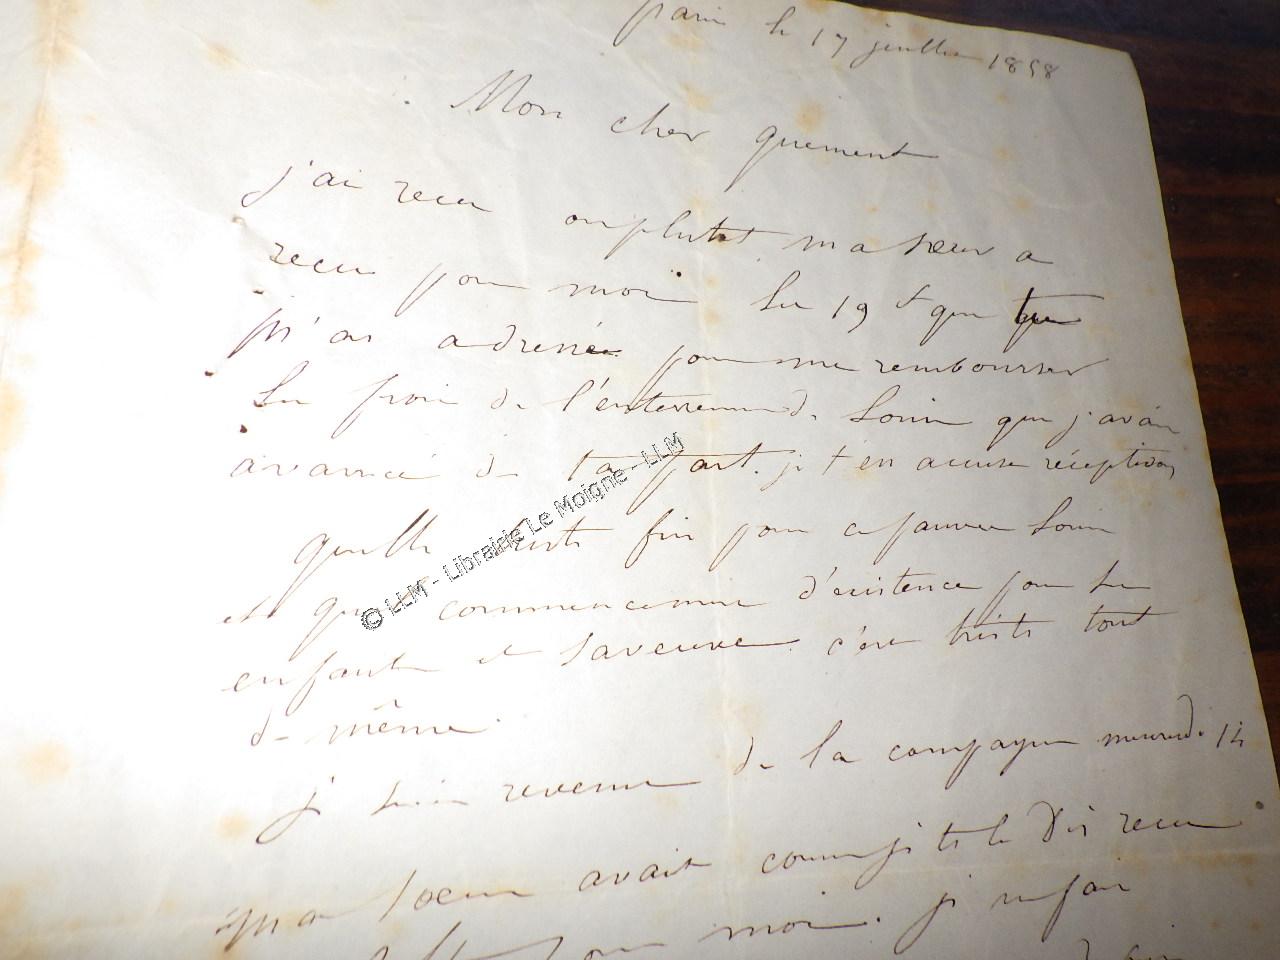 paris le 17 juillet 1858
Mon cher quement
j'ai recu ou plutot ma soeur a
recu pour moi les 19 f que tu
m'as adressée pour me rembourser
les frais de l'enterrement de Louis que j'avais
avancé de ta part. je t'en accuse réception
quelle triste fin pour ce pauvre Louis
et quel commencement d'existence pour ses
enfants et sa veuve. c'est triste tout
de même.
je suis revenu de la campagne mercredi 14
ma soeur avait comme je te le dis recu
pour moi. je
© LLM - Librairie Le Moigne - LLM